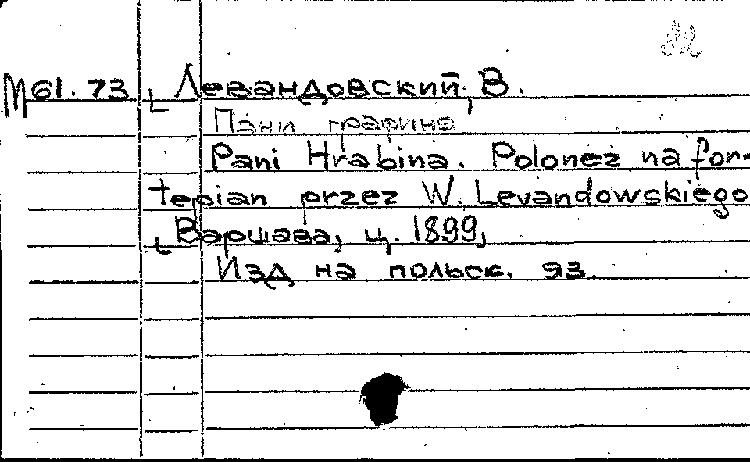 М61.73 Левандовский, В.
Пани графиня
Pani Hrabina. Polonez na for-
tepian przez W. Levandowskiego
Варшава, ц. 1899,
Изд на польск. яз.